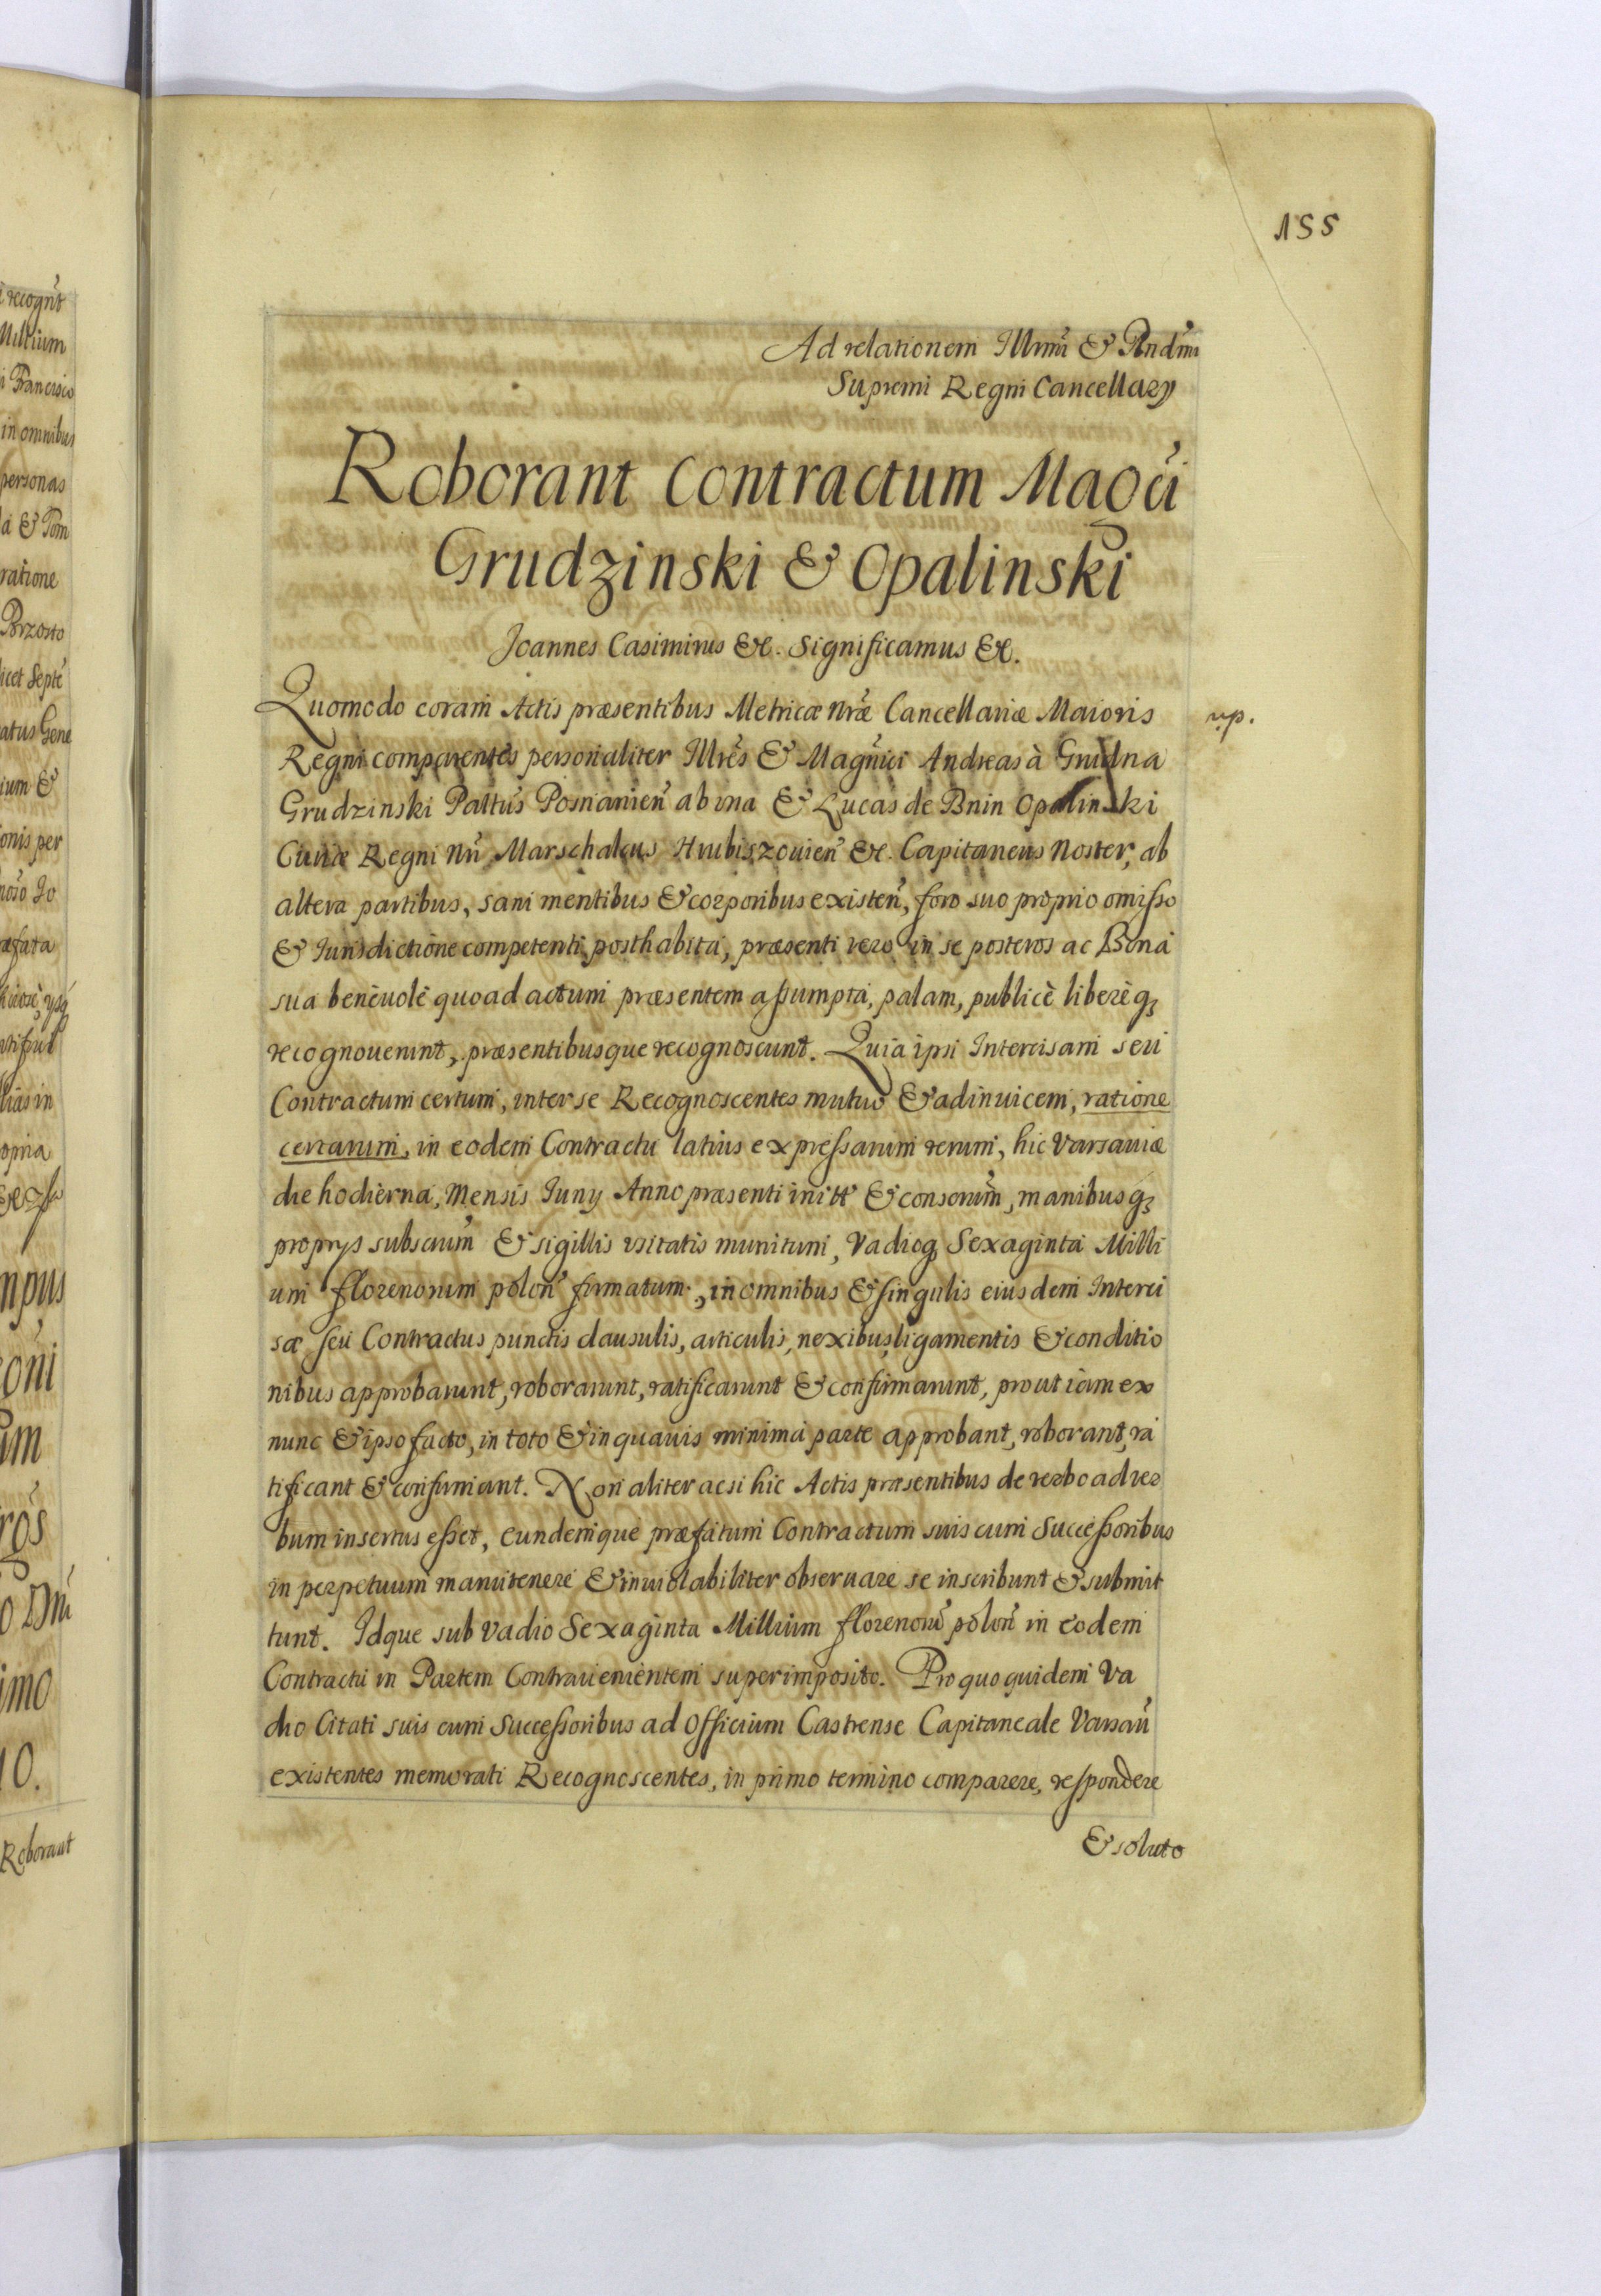 155
Ad relationem Illmi & Rndmi
Supremi Regni Cancellary
Roborant Contractum Magci
Grudzinski & Opalinski
Joannes Casimirus &c. Significamus &c.
Quomodo coram Actis præsentibus Metricæ nræ Cancellariæ Maioris
np.
Regni comparentes personaliter Illres & Magnici Andreas à Grudna
Grudzinski Paltus Posnanien ab una & Lucas de Bnin Opalinski
Curiæ Regni nri Marschalcus Hrubiszouien &c. Capitaneus Noster, ab
altera partibus, sani mentibus & corporibus existen, foro suo proprio omisso
& Iurisdictione competenti posthabita, præsenti vero in se posteros ac Bona
sua beneuole quoad actum præsentem assumpta, palam, publicè liberèq
recognouerunt, præsentibusque recognoscunt. Quia ipsi Intercisam seu
Contractum certum, inter se Recognoscentes mutuo & adinuicem, ratione
certarum, in eodem Contractu latius expressarum rerum, hic Varsauiæ
die hodierna, Mensis Iuny Anno præsenti initt & conscrium, manibusq
proprys subscrum & sigillis usitatis munitum, Vadioq Sexaginta Milli
um florenorum polon firmatum, in omnibus & singulis eiusdem Interci
sæ seu Contractus punctis clausulis, articulis, nexibus, ligamentis & conditio
nibus approbarunt, roborarunt, ratificarunt & confirmarunt, prout iam ex
nunc & ipso facto, in toto & in quauis minima parte approbant, roborant, ra
tificant & confirmant. Non aliter acsi hic Actis præsentibus de verbo ad ver
bum insertus esset, eundemque præfatum Contractum suis cum Successoribus
in perpetuum manutenere & inuiolabiliter obseruare se inscribunt & submit
tunt. Idque sub Vadio Sexaginta Millium florenorum polon in eodem
Contractu in Partem Contrauenientem superimposito. Pro quo quidem Va
dio Citati suis cum Successoribus ad Officium Castrense Capitaneale Varsau
existentes memorati Recognoscentes, in primo termino comparere, respondere
& soluto